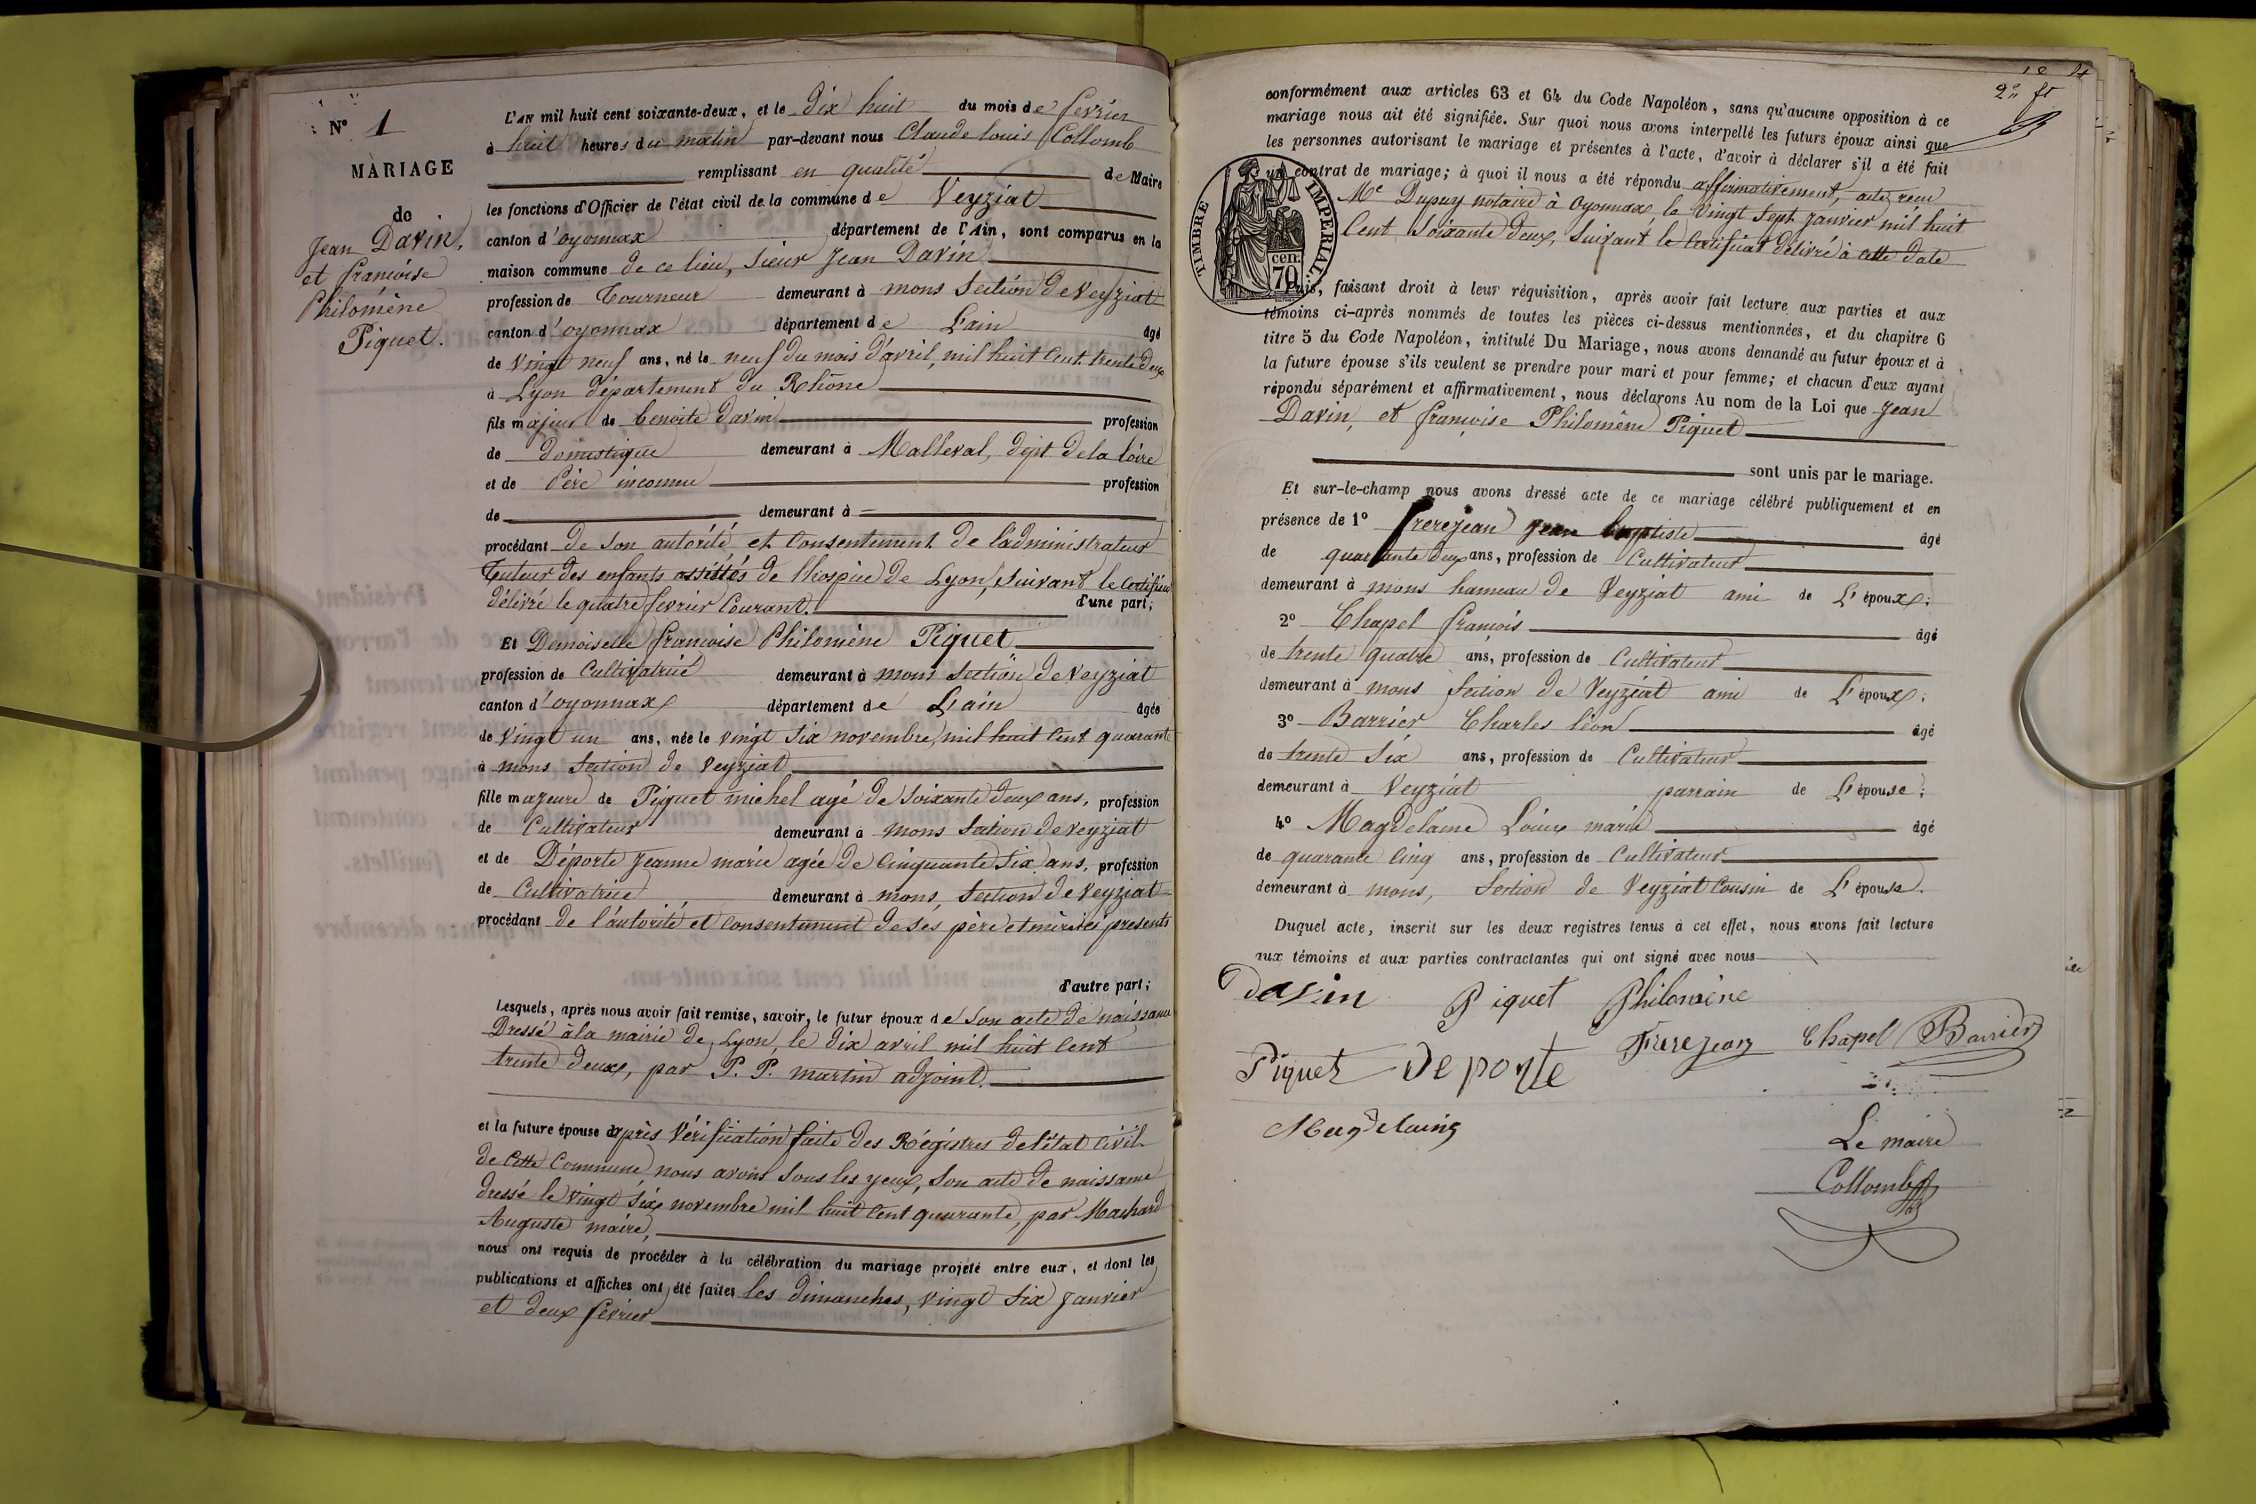 N° 1
MARIAGE
de
Jean Davin,
et françoise
Philomène
Piquet.
L'AN mil huit cent soixante-deux, et le dix huit du mois de fevrier
à huit heures du matin par-devant nous Claude louis Collomb
remplissant en qualité de Maire
les fonctions d'Officier de l'état civil de la commune de Veyziat
canton d'oyonnax département de l'Ain, sont comparus en la
maison commune de ce lieu, Sieur Jean Davin
profession de Tourneur demeurant à mons Section de Veyziat
canton d'oyonnax département de L'ain âgé
de vingt neuf ans, né le neuf du mois d'avril, mil huit Cent trente deux
à Lyon département du Rhône
fils majeur de benoite davin profession
de domestique demeurant à Malleval, dépt de la loire
et de Père inconnu profession
de demeurant à
procédant de son autorité et Consentement de l'administrateur
Tuteur des enfants assistés de l'hospice de Lyon, Suivant le Certificat
délivré le quatre fevrier Courant. d'une part;
Et Demoiselle françoise Philomène Piquet
profession de Cultivatrice demeurant à mons Section de Veyziat
canton d'oyonnax département de L'ain âgée
de vingt un ans, née le vingt Six novembre, mil huit Cent quarante
à mons Section de Veyziat
fille majeure de Piquet michel agé de Soixante deux ans, profession
de Cultivateur demeurant à mons Section de Veyziat
et de Déporte Jeanne marie agée de Cinquante Six ans, profession
de Cultivatrice demeurant à mons, Section de Veyziat
procédant de l'autorité et Consentement de Ses père et mère ici presents
d'autre part;
Lesquels, après nous avoir fait remise, savoir, le futur époux de Son acte de naissance
Dressé à la mairie de Lyon, le dix avril mil huit Cent
trente deux, par P. P. martin adjoint.
et la future épouse après Vérification faite des Régistres de l'état Civil
de Cette Commune nous avons Sous les yeux, Son acte de naissance
dressé le vingt Six novembre mil huit Cent quarante, par Machard
Auguste maire,
nous ont requis de procéder à la célébration du mariage projeté entre eux, et dont les
publications et affiches ont été faites les dimanches, vingt Six Janvier
et deux février
2" fr
conformément aux articles 63 et 64 du Code Napoléon, sans qu'aucune opposition à ce
mariage nous ait été signifiée. Sur quoi nous avons interpellé les futurs époux ainsi que
les personnes autorisant le mariage et présentes à l'acte, d'avoir à déclarer s'il a été fait
un contrat de mariage; à quoi il nous a été répondu affirmativement, acte recu
Me Dupuy notaire à Oyonnax, le Vingt Sept Janvier mil huit
Cent Soixante deux, Suivant le Certificat délivré à cette date
TIMBRE IMPERIAL.
70 cen.
Puis, faisant droit à leur réquisition, après avoir fait lecture aux parties et aux
témoins ci-après nommés de toutes les pièces ci-dessus mentionnées, et du chapitre 6
titre 5 du Code Napoléon, intitulé Du Mariage, nous avons demandé au futur époux et à
la future épouse s'ils veulent se prendre pour mari et pour femme; et chacun d'eux ayant
répondu séparément et affirmativement, nous déclarons Au nom de la Loi que Jean
Davin, et françoise Philomène Piquet
sont unis par le mariage.
Et sur-le-champ nous avons dressé acte de ce mariage célébré publiquement et en
présence de 1° frerejean Jean baptiste âgé
de quarante deux ans, profession de Cultivateur
demeurant à mons hameau de Veyziat ami de L'époux;
2° Chapel françois âgé
de trente quatre ans, profession de Cultivateur
demeurant à mons Section de Veyziat ami de L'époux;
3° Barrier Charles léon âgé
de trente Six ans, profession de Cultivateur
demeurant à Veyziat parrain de L'épouse;
4° Magdelaine Louis marie âgé
de quarante Cinq ans, profession de Cultivateur
demeurant à mons, Section de Veyziat Cousin de L'épouse.
Duquel acte, inscrit sur les deux registres tenus à cet effet, nous avons fait lecture
aux témoins et aux parties contractantes qui ont signé avec nous
Davin Piquet Philomène
Frerejean Chapel Barrier
Piquet Deporte
Magdelaine
Le maire
Collomb